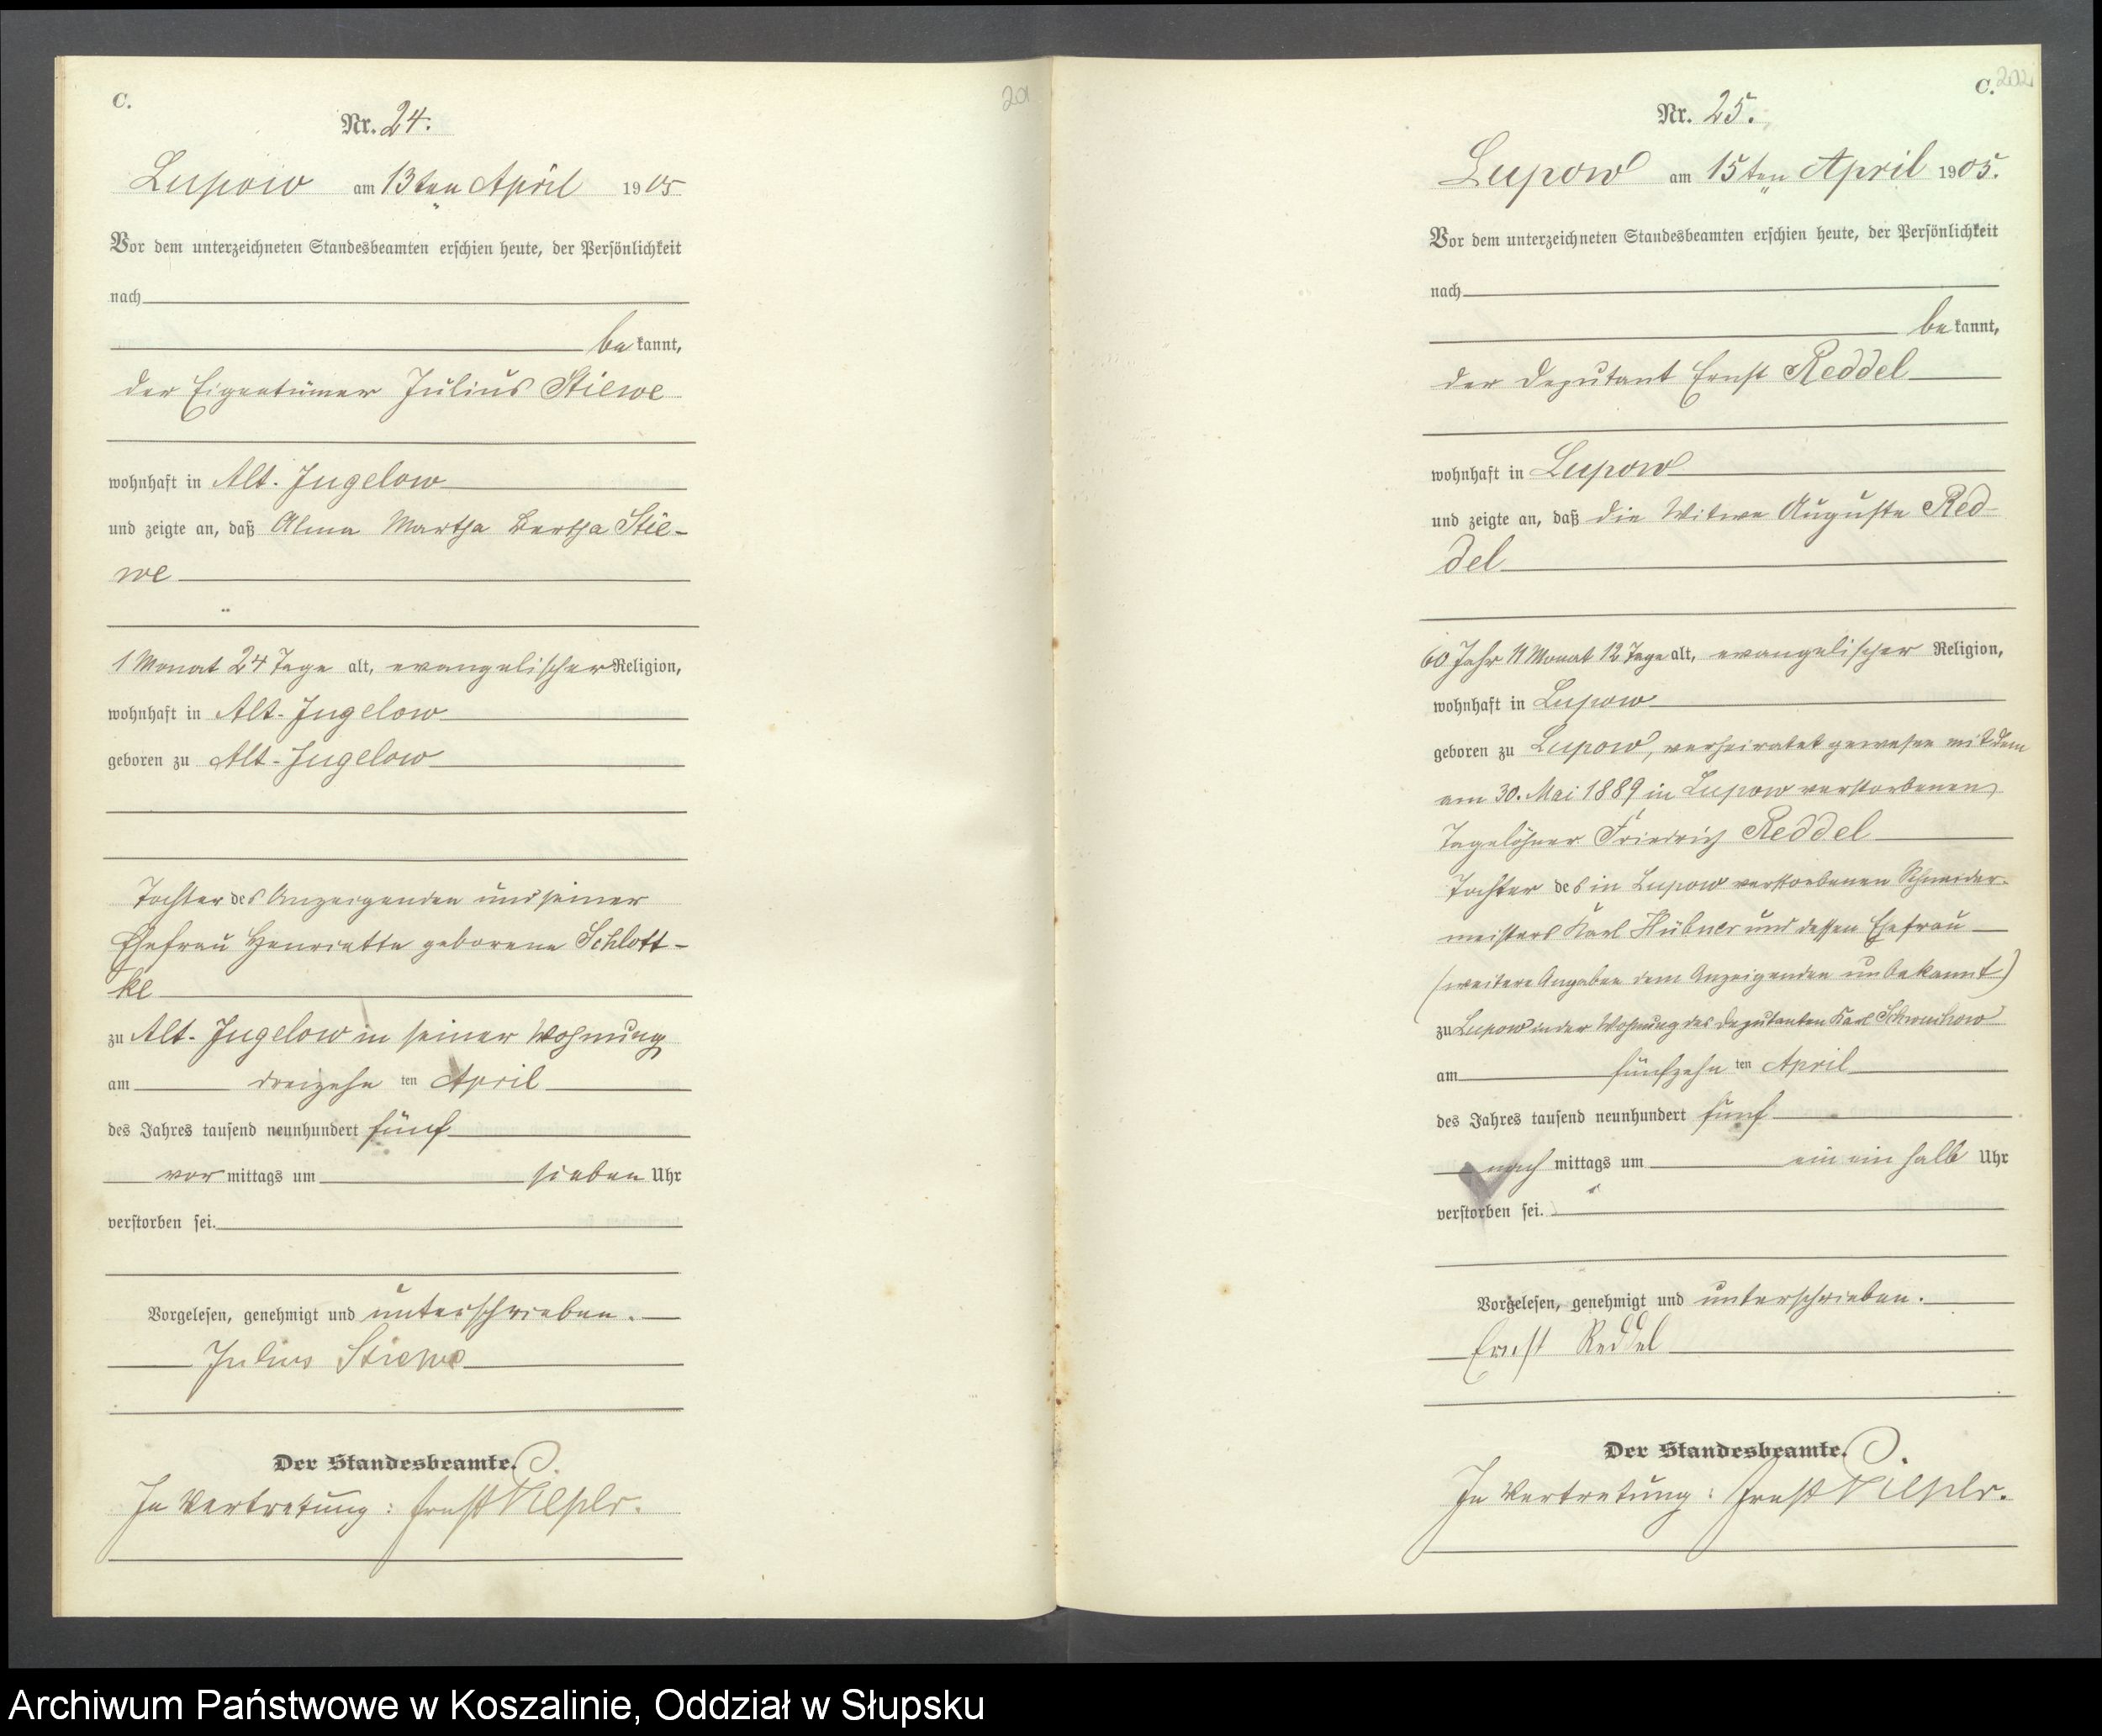 C.
Nr. 24.
Lupow am 13ten April 1905
Vor dem unterzeichneten Standesbeamten erschien heute, der Persönlichkeit
nach
bekannt,
der Eigentümer Julius Stiewe
wohnhaft in Alt-Jugelow
und zeigte an, daß Alma Martha Bertha Stie-
we
1 Monat 24 Tage alt, evangelischer Religion,
wohnhaft in Alt-Jugelow
geboren zu Alt-Jugelow
Tochter des Anzeigenden und seiner
Ehefrau Henriette geborene Schlott-
ke
zu Alt-Jugelow in seiner Wohnung
am dreizehnten April
des Jahres tausend neunhundert fünf
vormittags um sieben Uhr
verstorben sei.
Vorgelesen, genehmigt und unterschrieben.
Julius Stiewe
Der Standesbeamte.
In Vertretung: Ernst
201
C. 202
Nr. 25.
Lupow am 15ten April 1905.
Vor dem unterzeichneten Standesbeamten erschien heute, der Persönlichkeit
nach
bekannt,
der Deputant Ernst Reddel
wohnhaft in Lupow
und zeigte an, daß die Witwe Auguste Red-
del
60 Jahr 11 Monat 12 Tage alt, evangelischer Religion,
wohnhaft in Lupow
geboren zu Lupow, verheiratet gewesen mit dem
am 30. Mai 1889 in Lupow verstorbenen
Tagelöhner Friedrich Reddel
Tochter des in Lupow verstorbenen Schneider-
meisters Karl Hübner und dessen Ehefrau
(weitere Angaben dem Anzeigenden unbekannt)
zu Lupow in der Wohnung des Deputanten Karl Schwuchow
am fünfzehnten April
des Jahres tausend neunhundert fünf
nachmittags um ein ein halb Uhr
verstorben sei.
Vorgelesen, genehmigt und unterschrieben.
Ernst Reddel
Der Standesbeamte.
In Vertretung: Ernst
Archiwum Państwowe w Koszalinie, Oddział w Słupsku